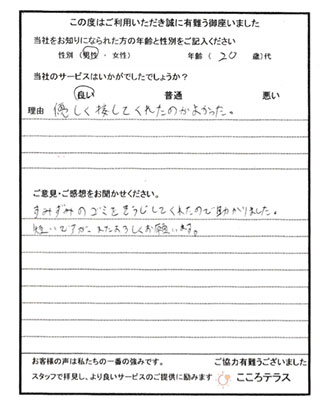 この度はご利用いただき誠に有難う御座いました
当社をお知りになられた方の年齢と性別をご記入ください
性別 (男性 ・ 女性) 年齢 ( 20 歳)代
当社のサービスはいかがでしたでしょうか?
良い 普通 悪い
理由 優しく接してくれたのがよかった。
ご意見・ご感想をお聞かせください。
すみずみのゴミをそうじしてくれたので助かりました。
短いですが またよろしくお願います。
お客様の声は私たちの一番の強みです。 ご協力有難うございました
スタッフで拝見し、より良いサービスのご提供に励みます こころテラス